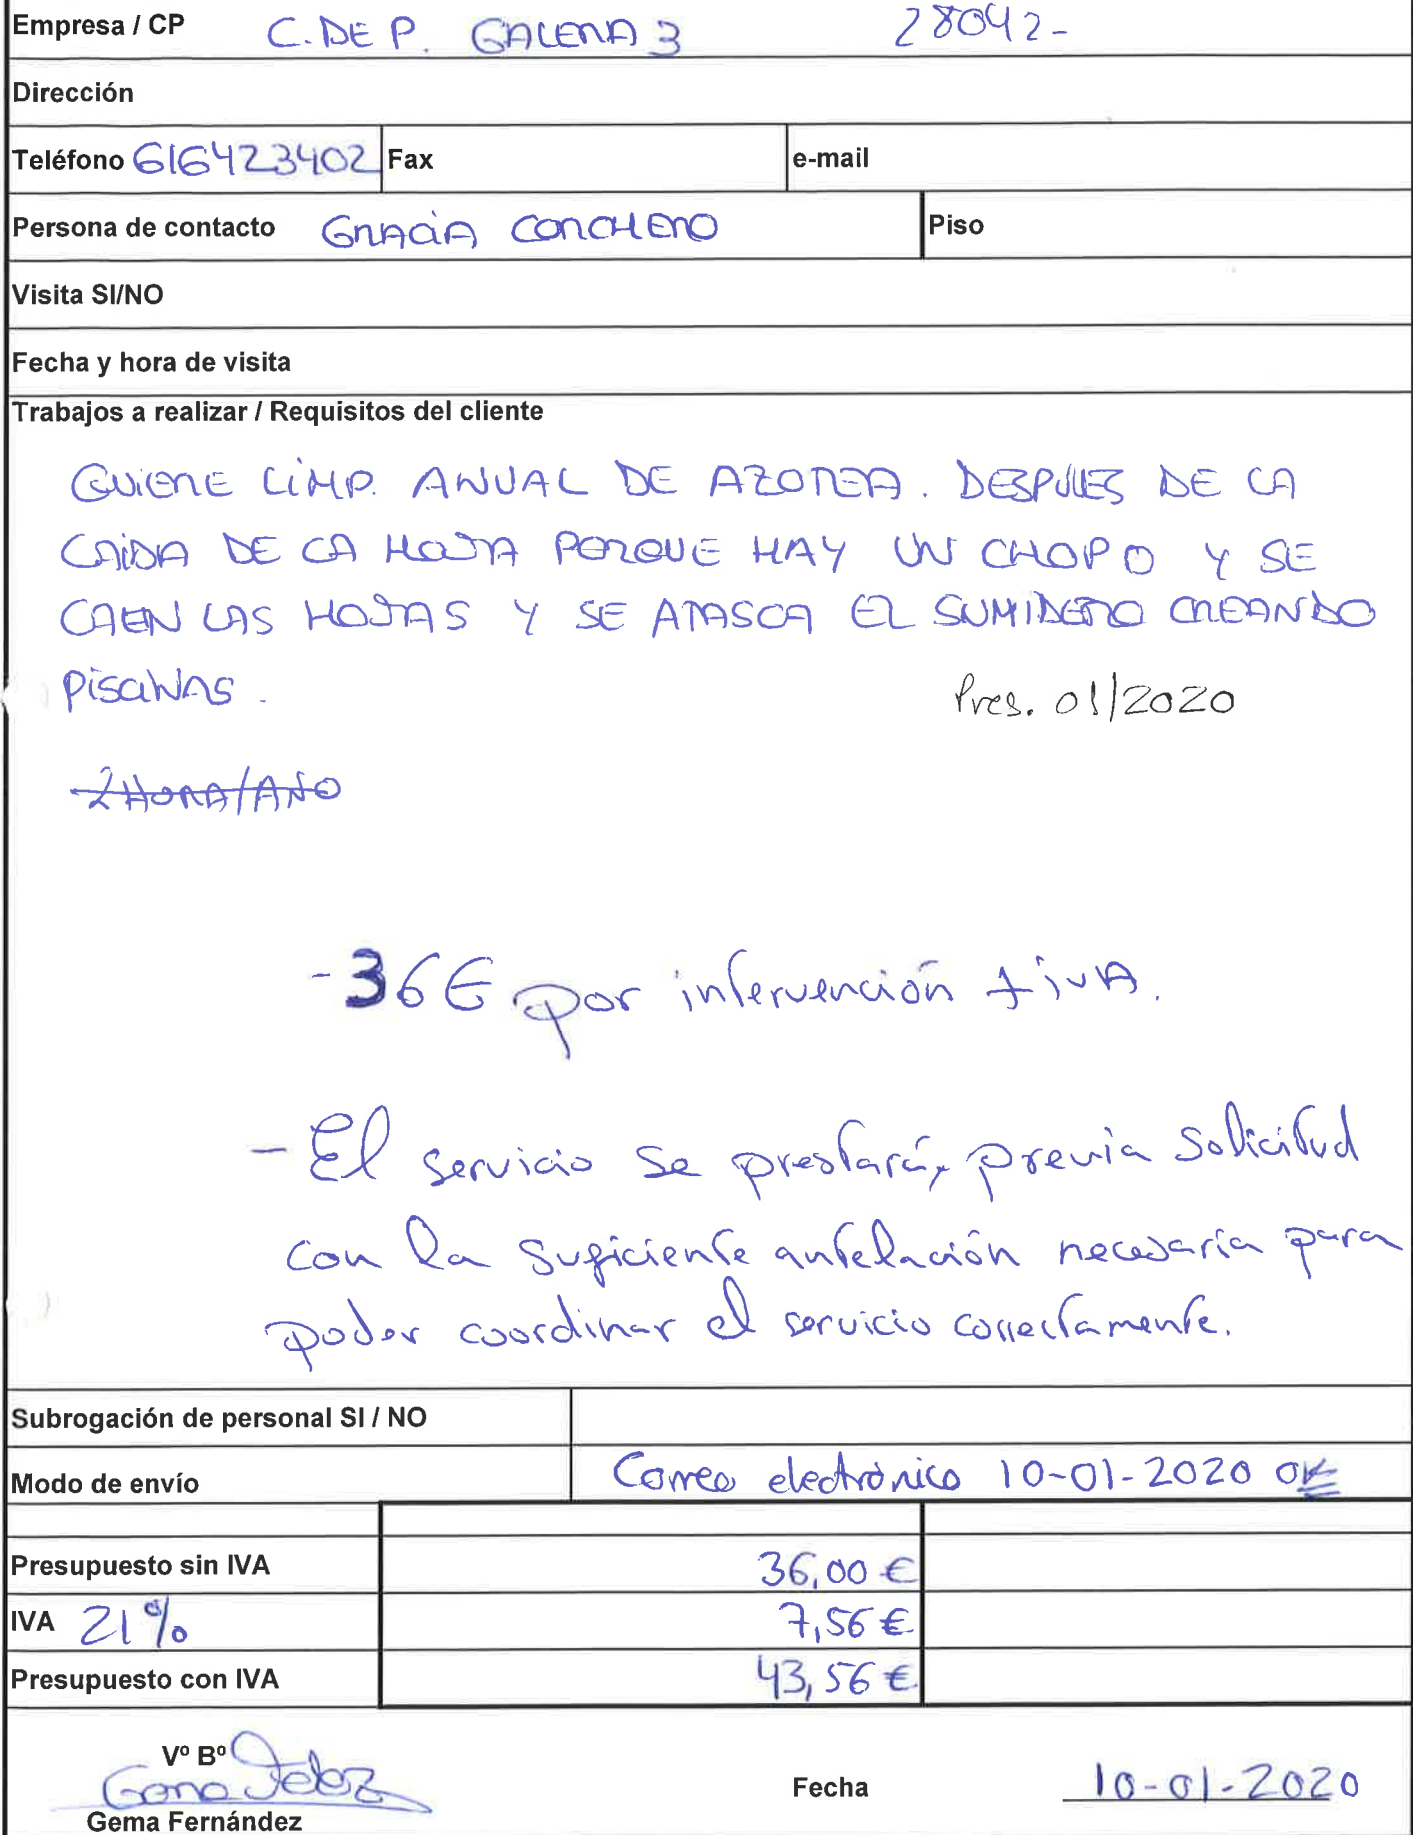 Empresa / CP C. DE P. GALENA 3 28042-
Dirección
Teléfono 616423402 Fax e-mail
Persona de contacto GRACIA CONCHERO Piso
Visita SI/NO
Fecha y hora de visita
Trabajos a realizar / Requisitos del cliente
QUIERE LIMP. ANUAL DE AZOTEA. DESPUES DE LA
CAIDA DE LA HOJA PORQUE HAY UN CHOPO Y SE
CAEN LAS HOJAS Y SE ATASCA EL SUMIDERO CREANDO
PISCINAS.
Pres. 01/2020
1 HORA/AÑO
- 36€ por intervención + IVA.
- El servicio se prestará, previa solicitud
con la suficiente antelación necesaria para
poder coordinar el servicio correctamente.
Subrogación de personal SI / NO
Modo de envío Correo electrónico 10-01-2020 OK
Presupuesto sin IVA 36,00 €
IVA 21% 7,56 €
Presupuesto con IVA 43,56 €
Vº Bº
Gema Fdez
Fecha 10-01-2020
Gema Fernández